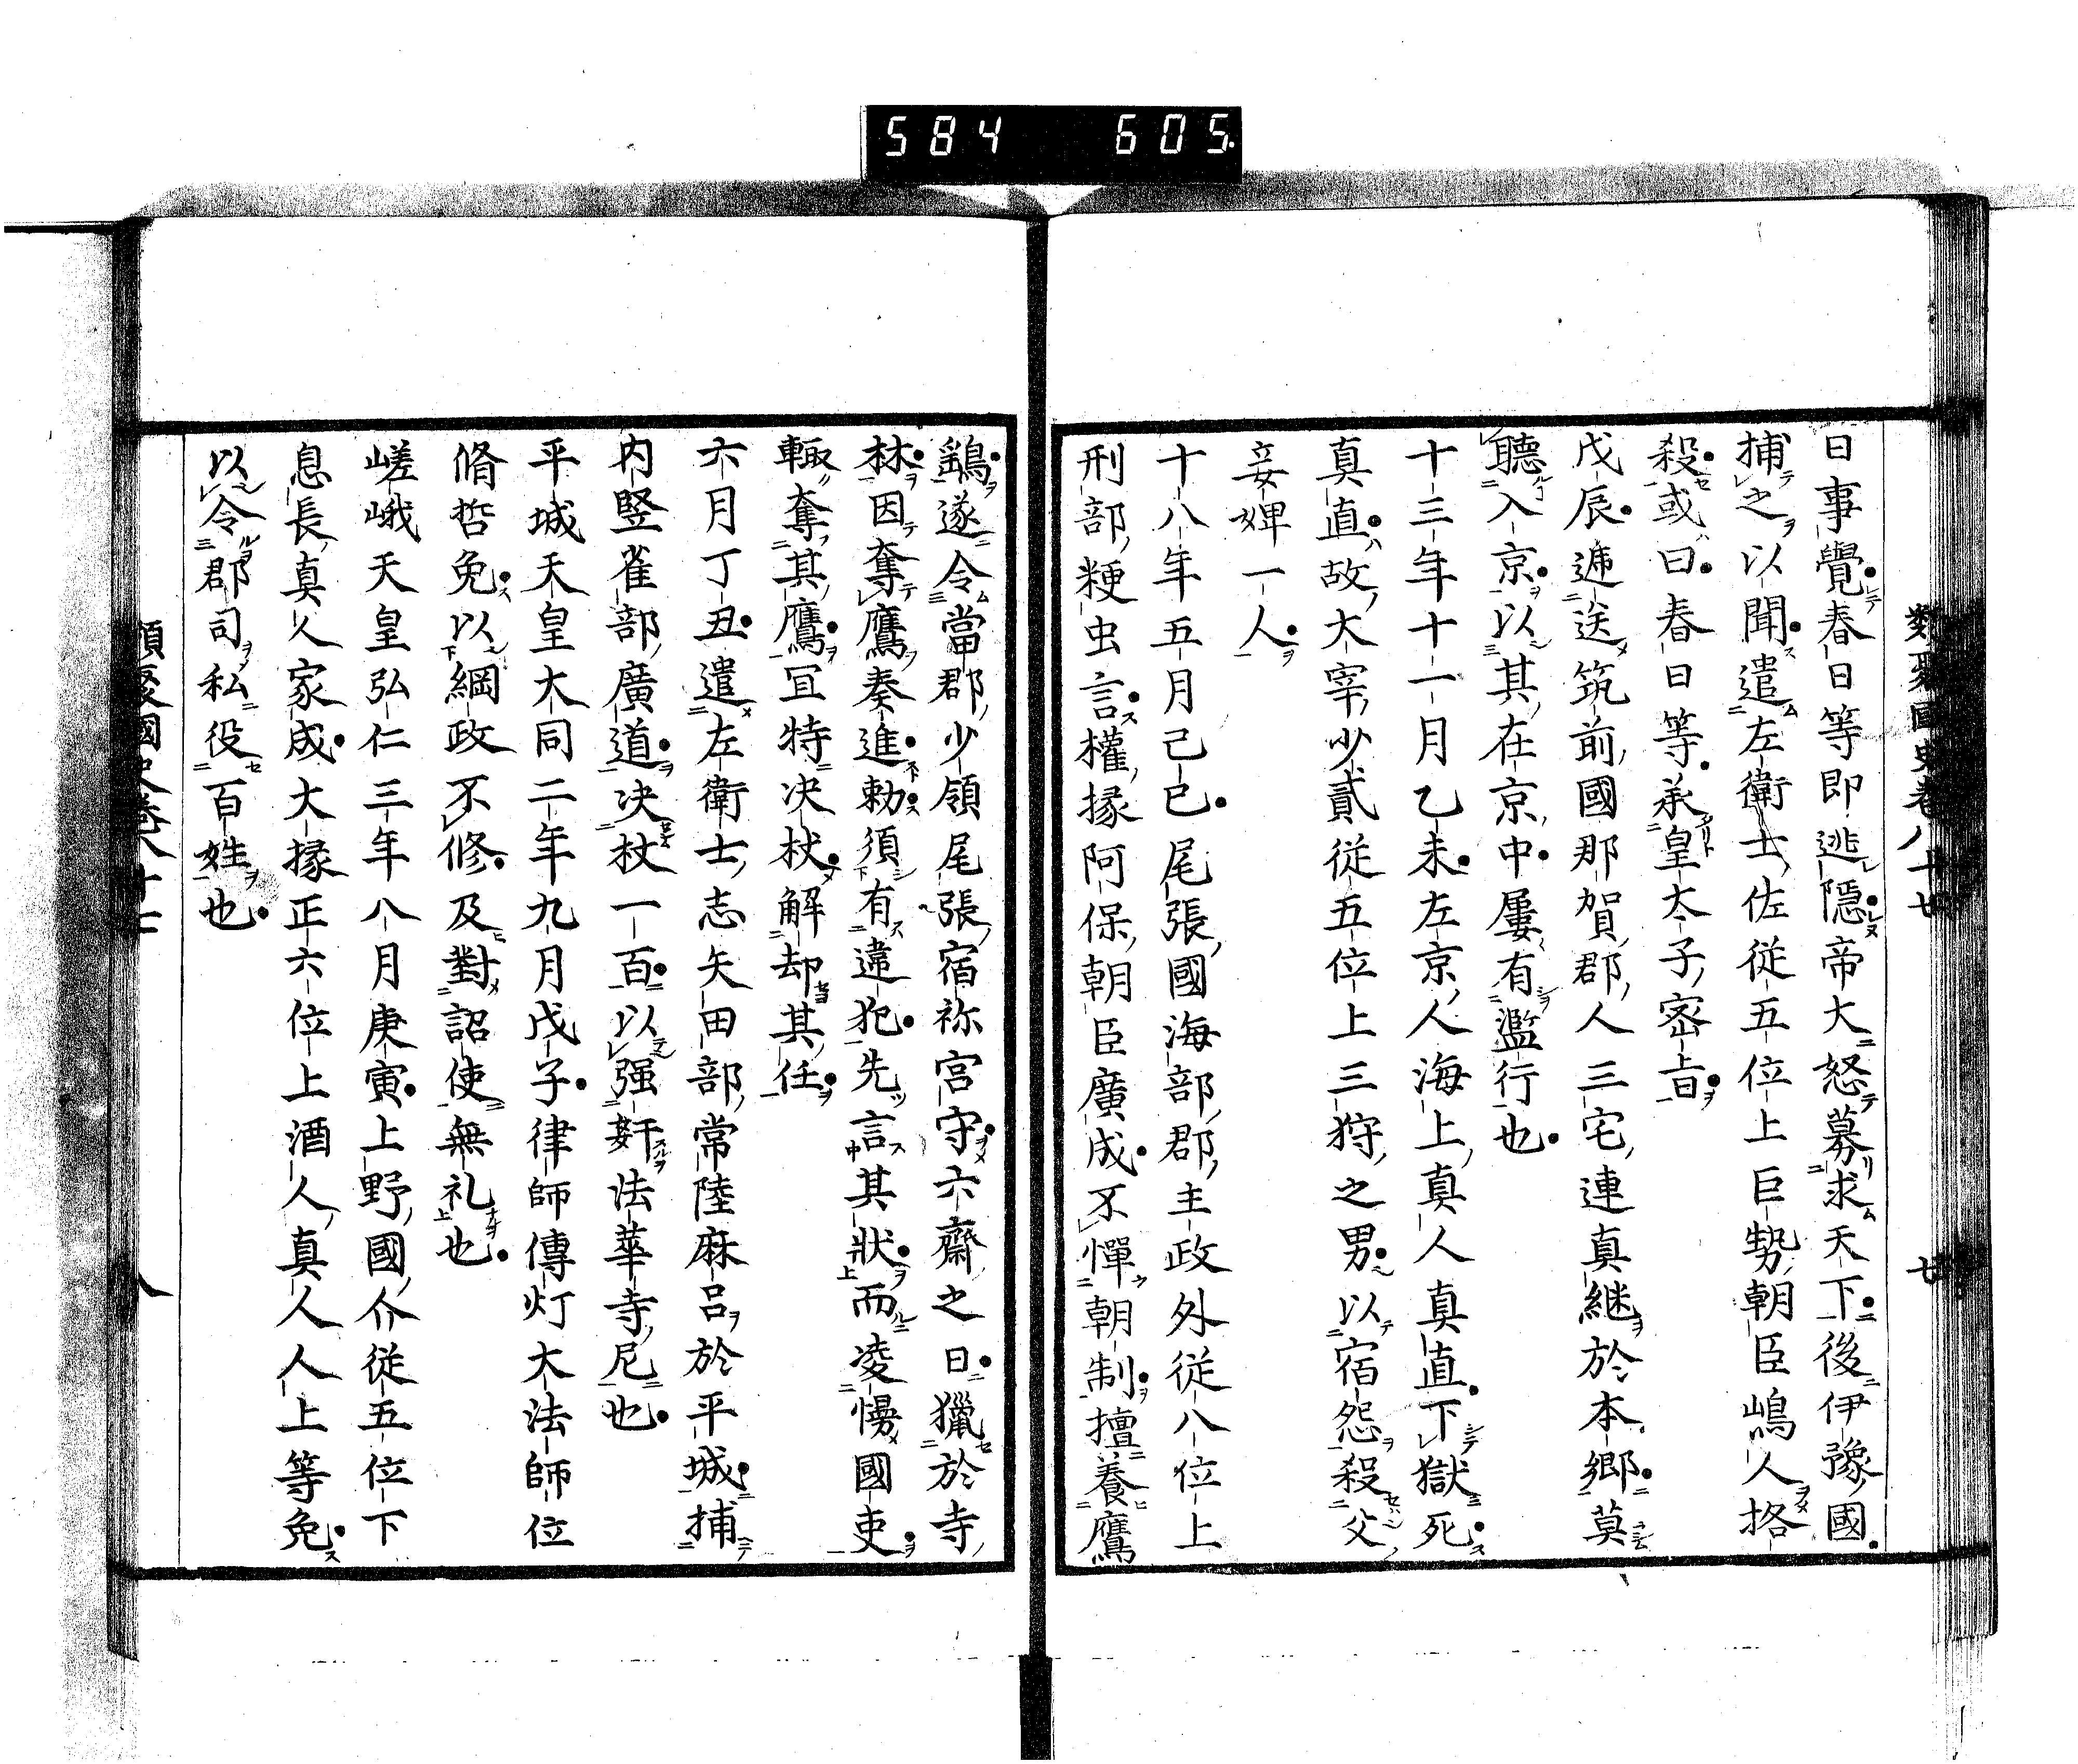 584 605
類聚國史卷八十七
七
日事覺春日等即逃隱帝大怒募求天下後伊豫國
捕之以聞遣左衛士佐従五位上巨勢朝臣嶋人格
殺或曰春日等承皇太子密旨
戊辰逓送筑前國那賀郡人三宅連真継於本郷莫
聽入京以其在京中屢有濫行也
十三年十一月乙未左京人海上真人真直下獄死
真直故大宰少貳従五位上三狩之男以宿怨殺父
妾婢一人
十八年五月己巳尾張國海部郡主政外従八位上
刑部粳虫言權掾阿保朝臣廣成不憚朝制擅養鷹
鷂遂令當郡少領尾張宿祢宮守六齋之日獵於寺
林因奪鷹奏進勅須有違犯先言其狀而凌慢國吏
輙奪其鷹冝特决杖解却其任
六月丁丑遣左衛士志矢田部常陸麻呂於平城捕
内竪雀部廣道决杖一百以强姧法華寺尼也
平城天皇大同二年九月戊子律師傳灯大法師位
脩哲免以綱政不修及對詔使無礼也
嵯峨天皇弘仁三年八月庚寅上野國介従五位下
息長真人家成大掾正六位上酒人真人人上等免
以令郡司私役百姓也
類聚國史卷八十七
八